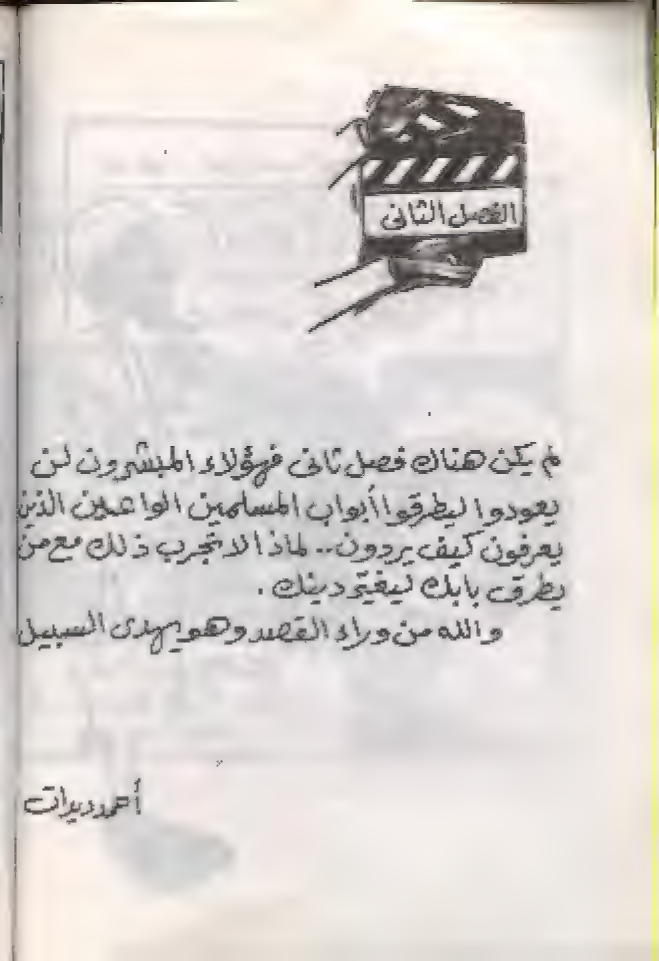 الفصل الثانى
لم يكن هناك فصل ثانى فهؤلاء المبشرون لن
يعودوا ليطرقوا أبواب المسلمين الواعين الذين
يعرفون كيف يردون.. لماذا لا تجرب ذلك مع من
يطرق بابك ليغير دينك.
والله من وراء القصد وهو يهدى السبيل
أحمد ديدات